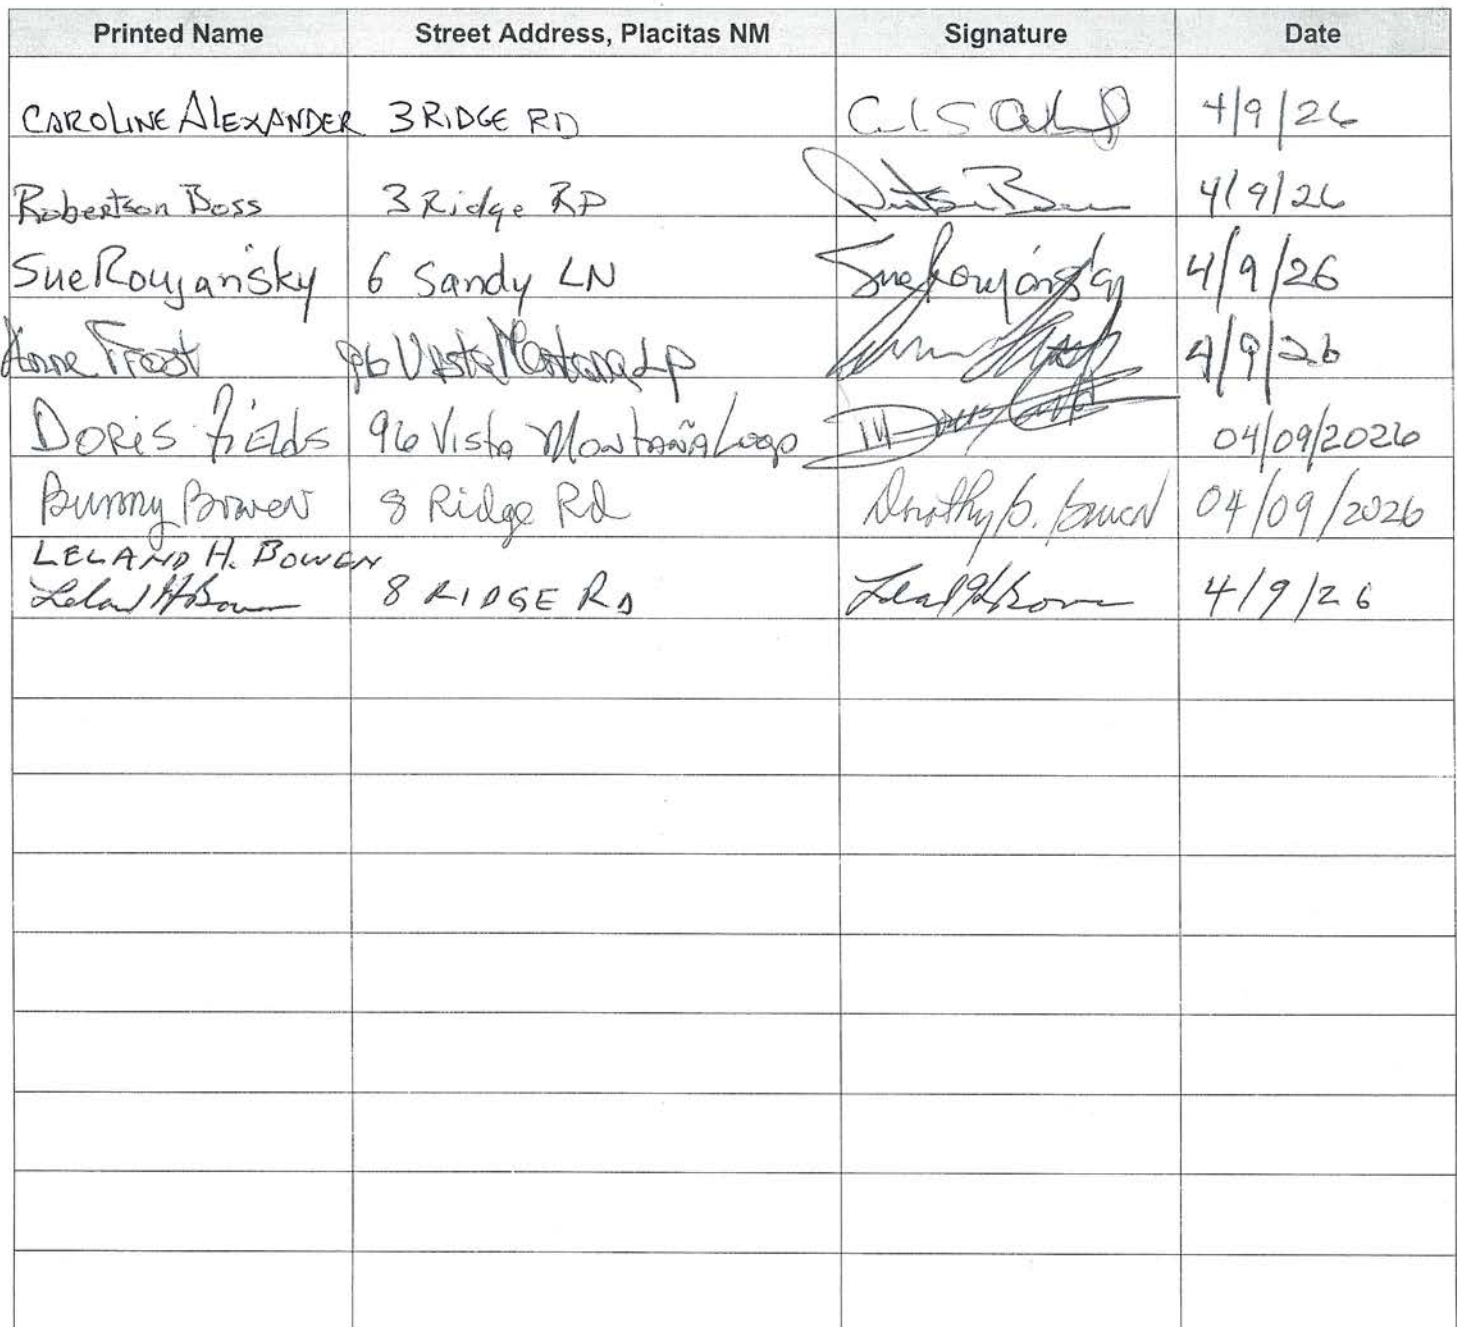 Printed Name Street Address, Placitas NM Signature Date
CAROLINE ALEXANDER 3 RIDGE RD 4/9/26
Robertson Boss 3 Ridge RD 4/9/26
Sue Roujansky 6 Sandy LN Sue Roujansky 4/9/26
Anne Frost 96 Vista Montana LP 4/9/26
DORIS FIELDS 96 Vista Montaña Loop 04/09/2026
Bunny Bowen 8 Ridge Rd Dorothy B. Bowen 04/09/2026
LELAND H. BOWEN
Leland H Bowen 8 RIDGE RD Leland H Bowen 4/9/26